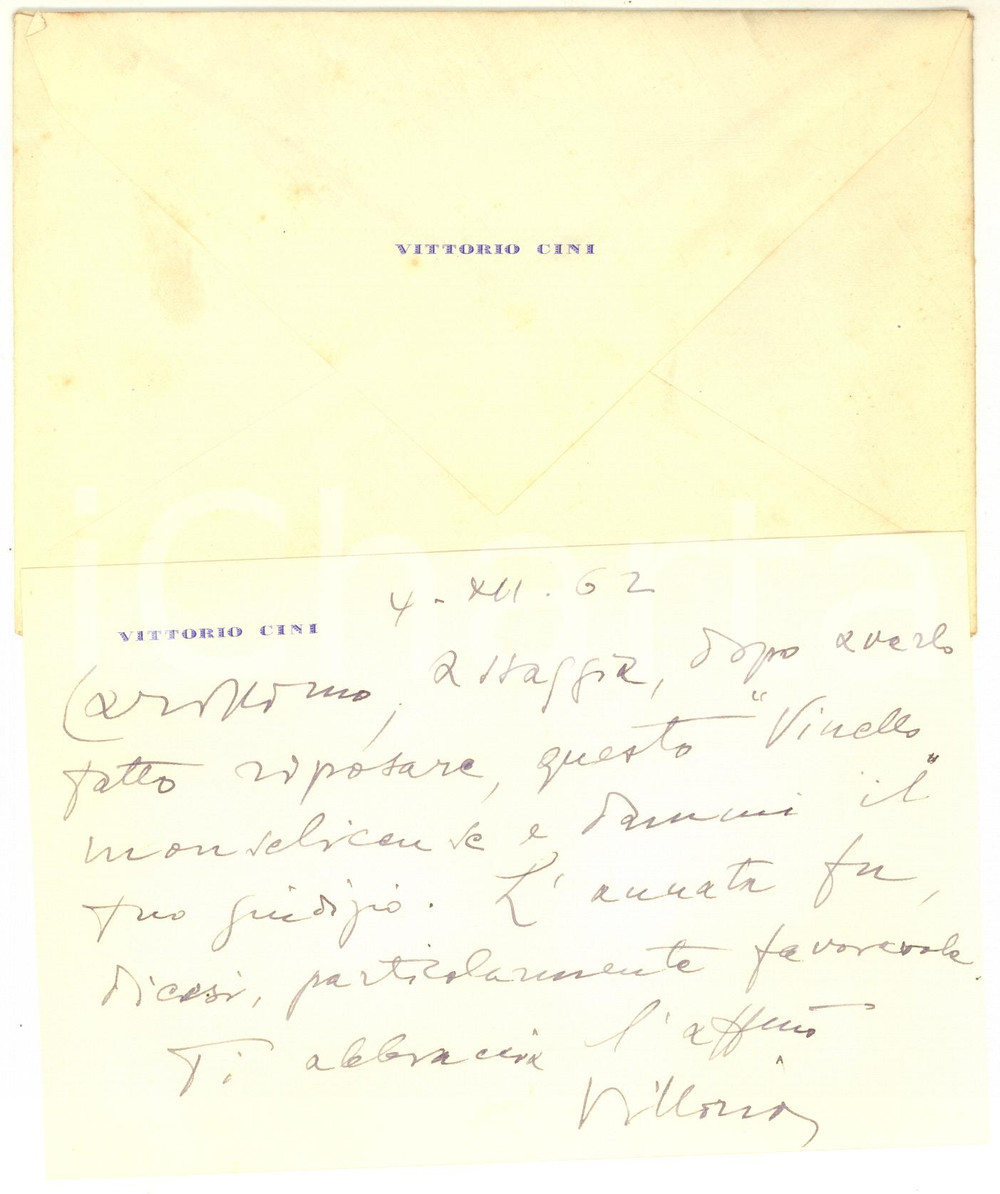 VITTORIO CINI
iCharta
VITTORIO CINI
4 - XII . 62
Carissimo, assaggia, dopo averlo
fatto riposare, questo "Vinello"
monselicense e dammi il
tuo giudizio. L'annata fu,
dicesi, particolarmente favorevole.
Ti abbraccia l'affmo
Vittorio